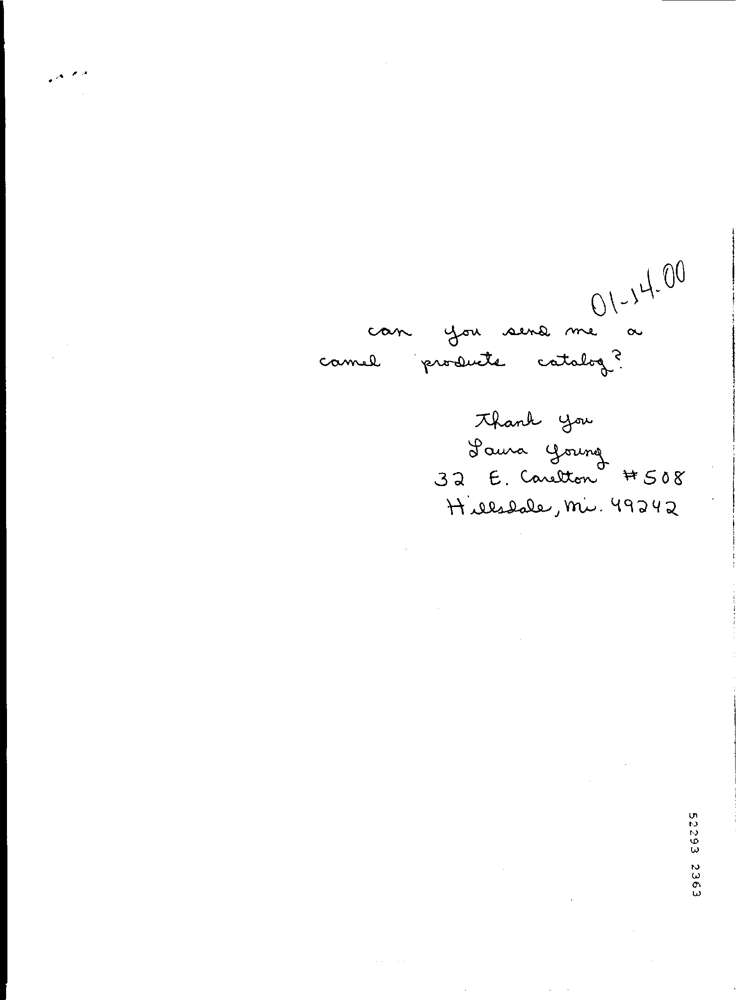 01-14.00
can you send me a
camel products catalog?
Thank you
Laura Young
32 E. Carelton #508
Hillsdale, Mi. 49242
52293 2363